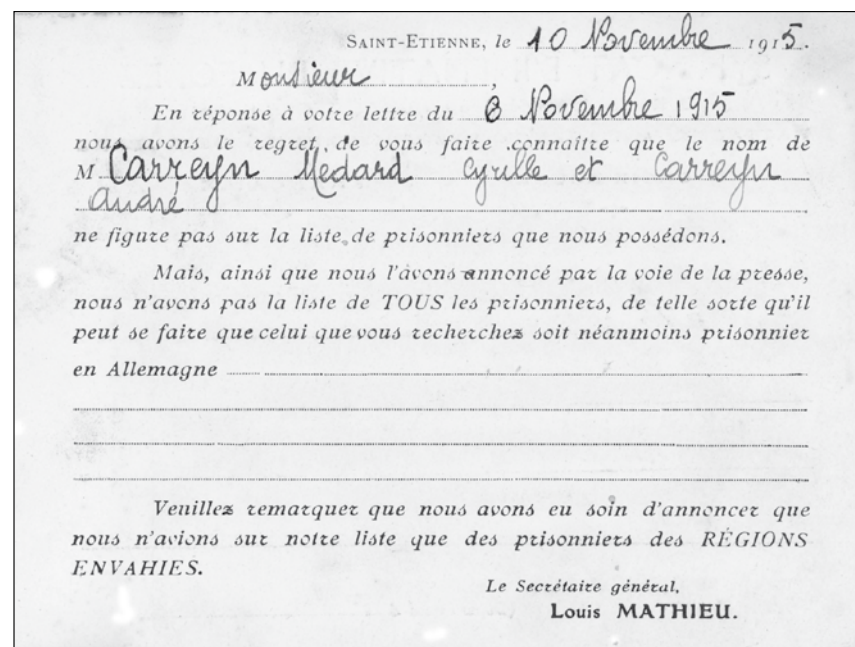 SAINT-ETIENNE, le 10 Novembre 1915.
Monsieur,
En réponse à votre lettre du 8 Novembre 1915
nous avons le regret, de vous faire connaître que le nom de
M Carreyn Medard Cyrille et Carreyn
André
ne figure pas sur la liste de prisonniers que nous possédons.
Mais, ainsi que nous l'avons annoncé par la voie de la presse,
nous n'avons pas la liste de TOUS les prisonniers, de telle sorte qu'il
peut se faire que celui que vous recherchez soit néanmoins prisonnier
en Allemagne
Veuillez remarquer que nous avons eu soin d'annoncer que
nous n'avions sur notre liste que des prisonniers des RÉGIONS
ENVAHIES.
Le Secrétaire général,
Louis MATHIEU.